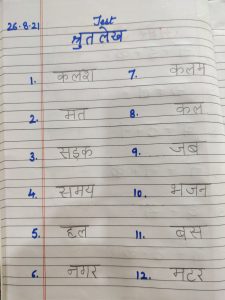 26.8.21 Test
श्रुतलेख
1. कलश 7. कलम
2. मत 8. कल
3. सड़क 9. जब
4. समय 10. भजन
5. हल 11. बस
6. नगर 12. मटर